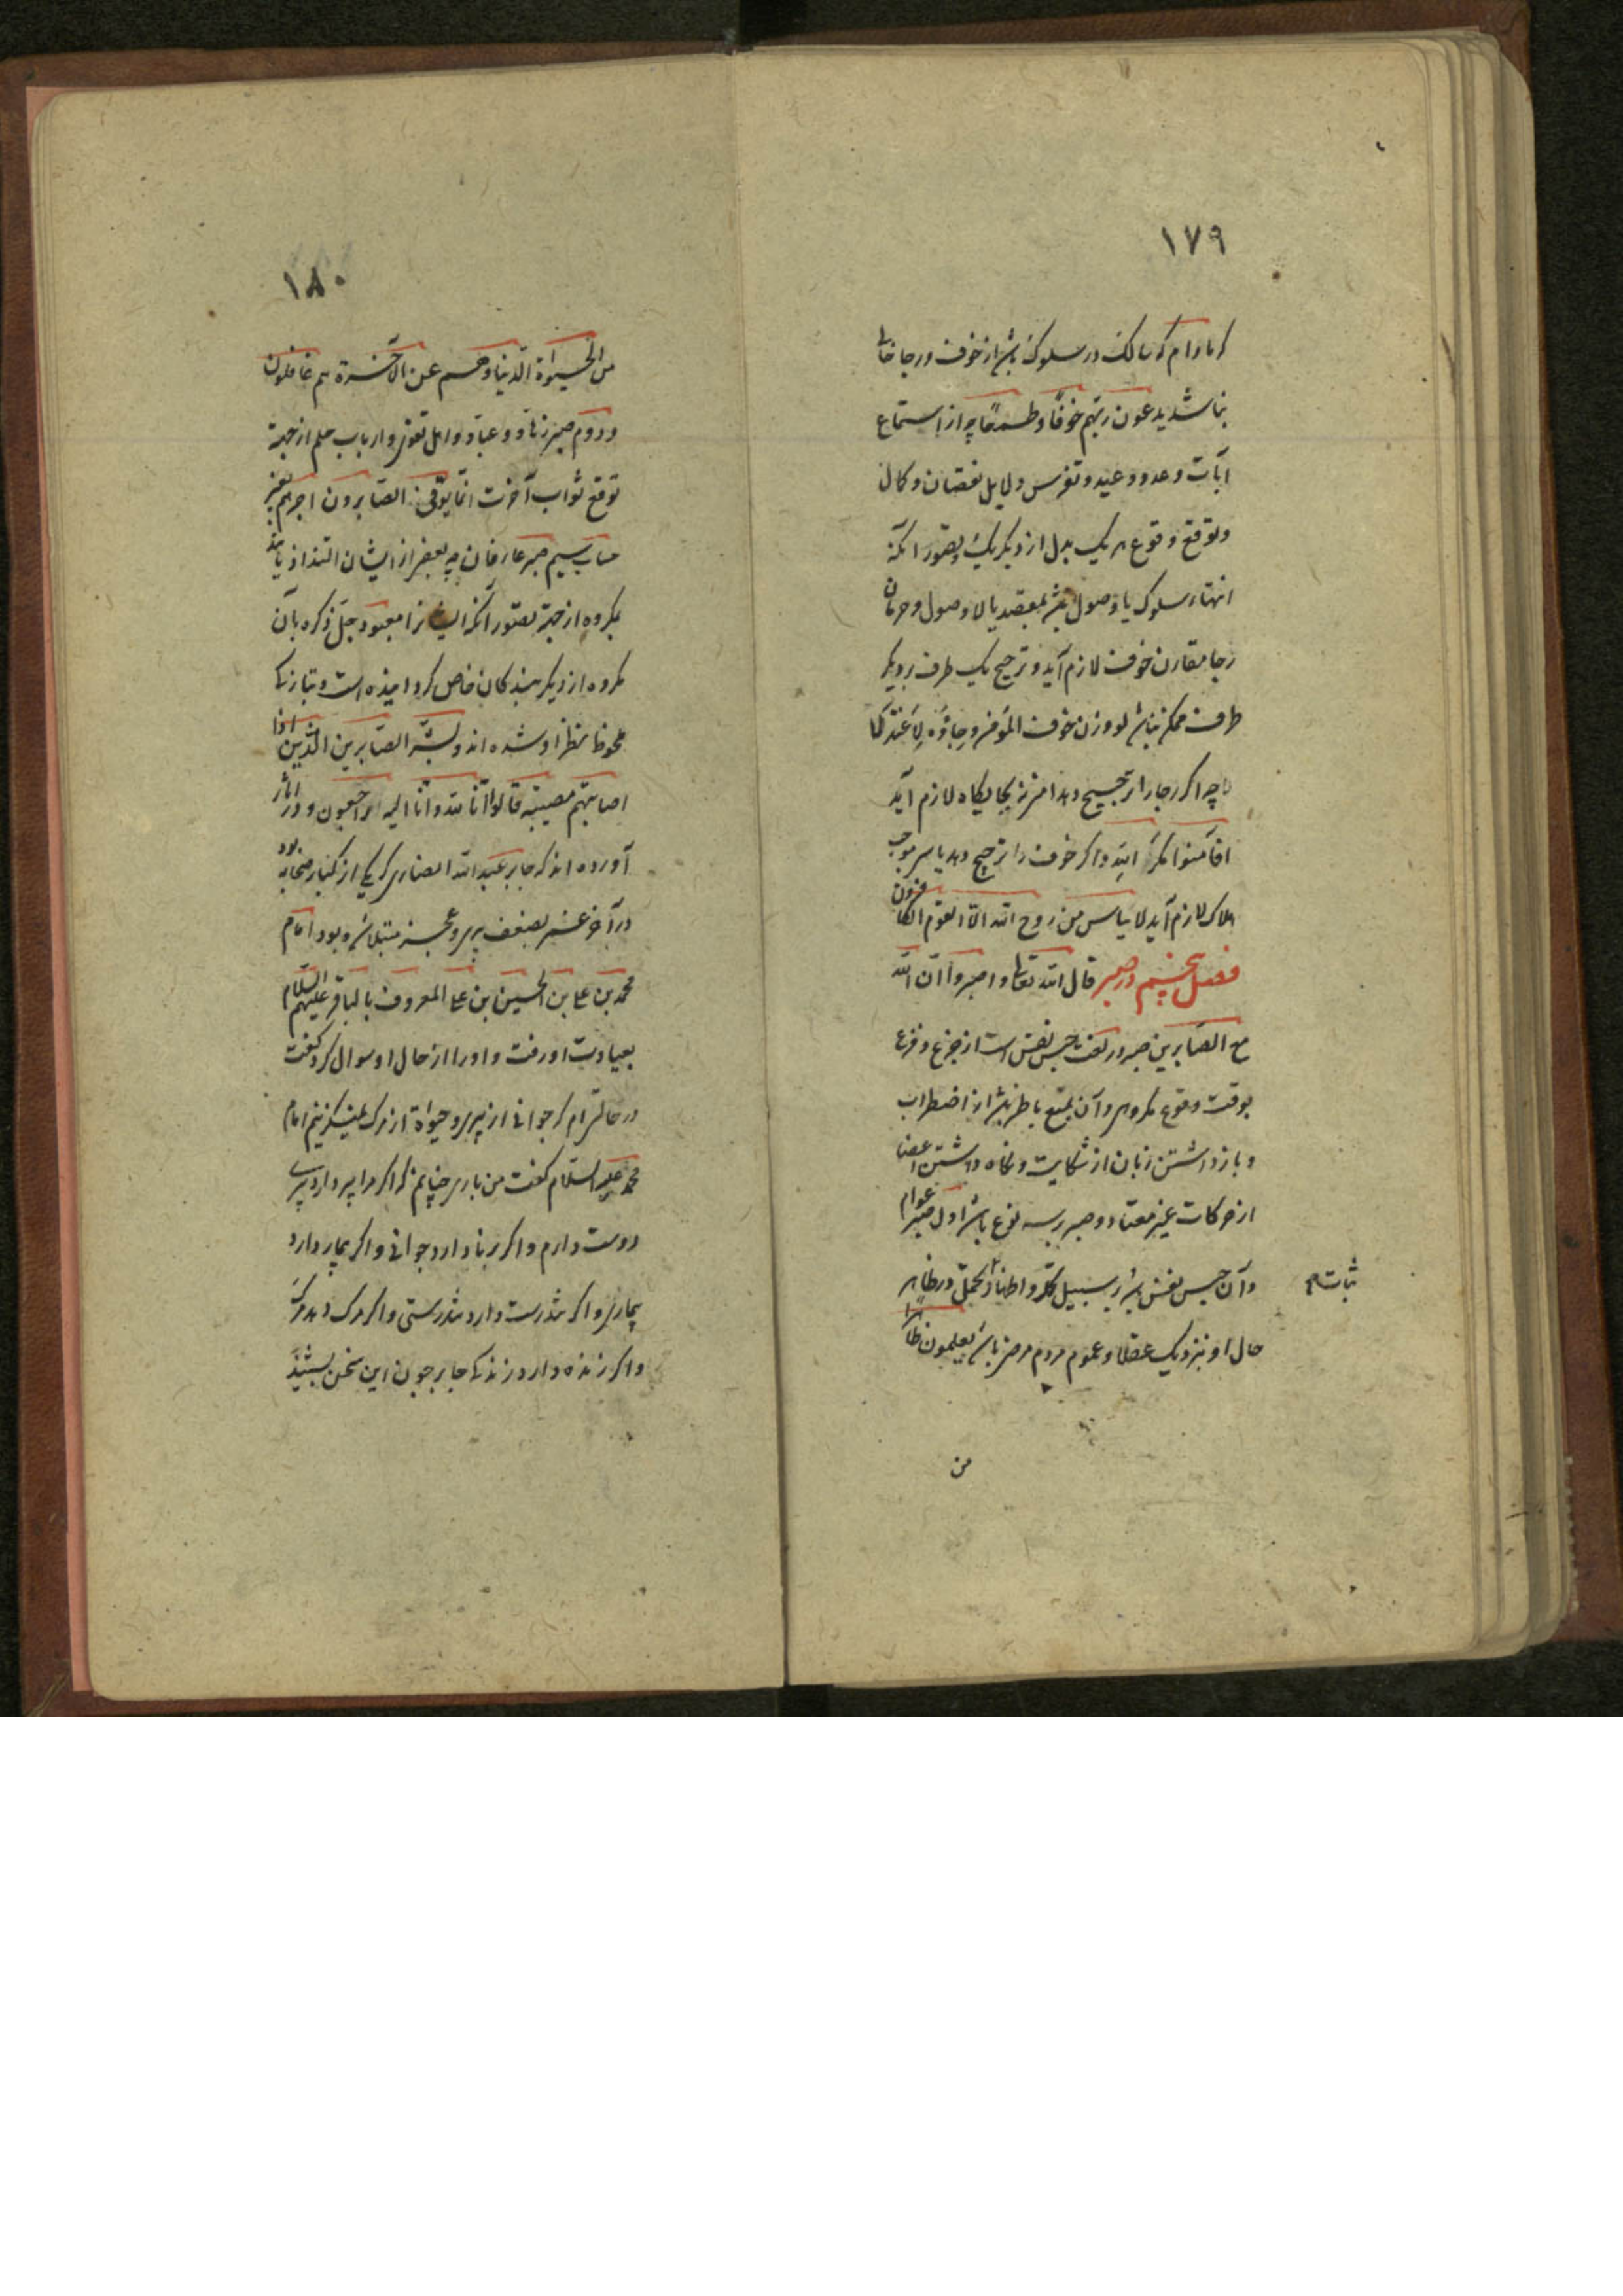 ۱۷۹
که مادام که سالک در سلوک باشد از خوف و رجا خالی
نباشد یدعون ربّهم خوفاً و طمعاً چه از استماع
آیات وعد و وعید و تفرس دلایل نقصان و کمال
و توقع وقوع هر یک بدل از دیگر یک و تصور آنکه
انتهاء سلوک یا وصول باشد بمقصد یا لا وصول و حرمان
رجا مقارن خوف لازم آید و ترجیح یک طرف بر دیگر
طرف ممکن نباشد لو وزن خوف المؤمن و رجاؤه لاعتدلا
چه اگر رجا را ترجیح دهد امنی نه بجایگاه لازم آید
افأمنوا مکر الله و اگر خوف را ترجیح دهد یاسی موجب
هلاک لازم آید لا ییاس من روح الله الا القوم الکافرون
فصل پنجم در صبر قال الله تعالی و اصبروا انّ الله
مع الصابرین صبر در لغت حبس نفس است از جزع و فزع
بوقت وقوع مکروهی و آن بمنع باطن باشد از اضطراب
و باز داشتن زبان از شکایت و نگاه داشتن اعضا
از حرکات غیر معتاد و صبر بر سه نوع باشد اول صبر عوام
و آن حبس نفس باشد بر سبیل تجلّد و اظهار تحمّل در ظاهر
ثبات
حال او نزدیک عقلا و عموم مردم مرضی باشد یعلمون ظاهراً
من
۱۸۰
من الحیوٰة الدّنیا و هم عن الآخرة هم غافلون
و دوم صبر زهّاد و عبّاد و اهل تقوی و ارباب حلم از جهة
توقع ثواب آخرت انّما یوفّی الصّابرون اجرهم بغیر
حساب سیم صبر عارفان چه بعضی از ایشان التذاذ یابند
بمکروه از جهة تصور آنکه ایشان را معبود جلّ ذکره بآن
مکروه از دیگر بندگان خاص گردانیده است و بتازگی
ملحوظ نظر او شده‌اند و بشّر الصّابرین الّذین اذا
اصابتهم مصیبة قالوا انّا لله و انّا الیه راجعون و در آثار
آورده‌اند که جابر عبد الله انصاری که یکی از کبار صحابه بود
در آخر عمر بضعف پیری و عجز مبتلا شده بود امام
محمّد بن علی بن الحسین بن علی المعروف بالباقر علیهم السّلام
بعیادت او رفت و او را از حال او سوال کرد گفت
در حالتی‌ام که جوانی از پیری و حیوٰة از مرگ بهتر
محمّد علیه السّلام گفت من باری چنانم که اگر مرا پیر دارد پیری
دوست دارم و اگر برنا دارد جوانی و اگر بیمار دارد
بیماری و اگر تندرست دارد تندرستی و اگر مرگ دهد مرگ
و اگر زنده دارد زندگی جابر چون این سخن بشنید